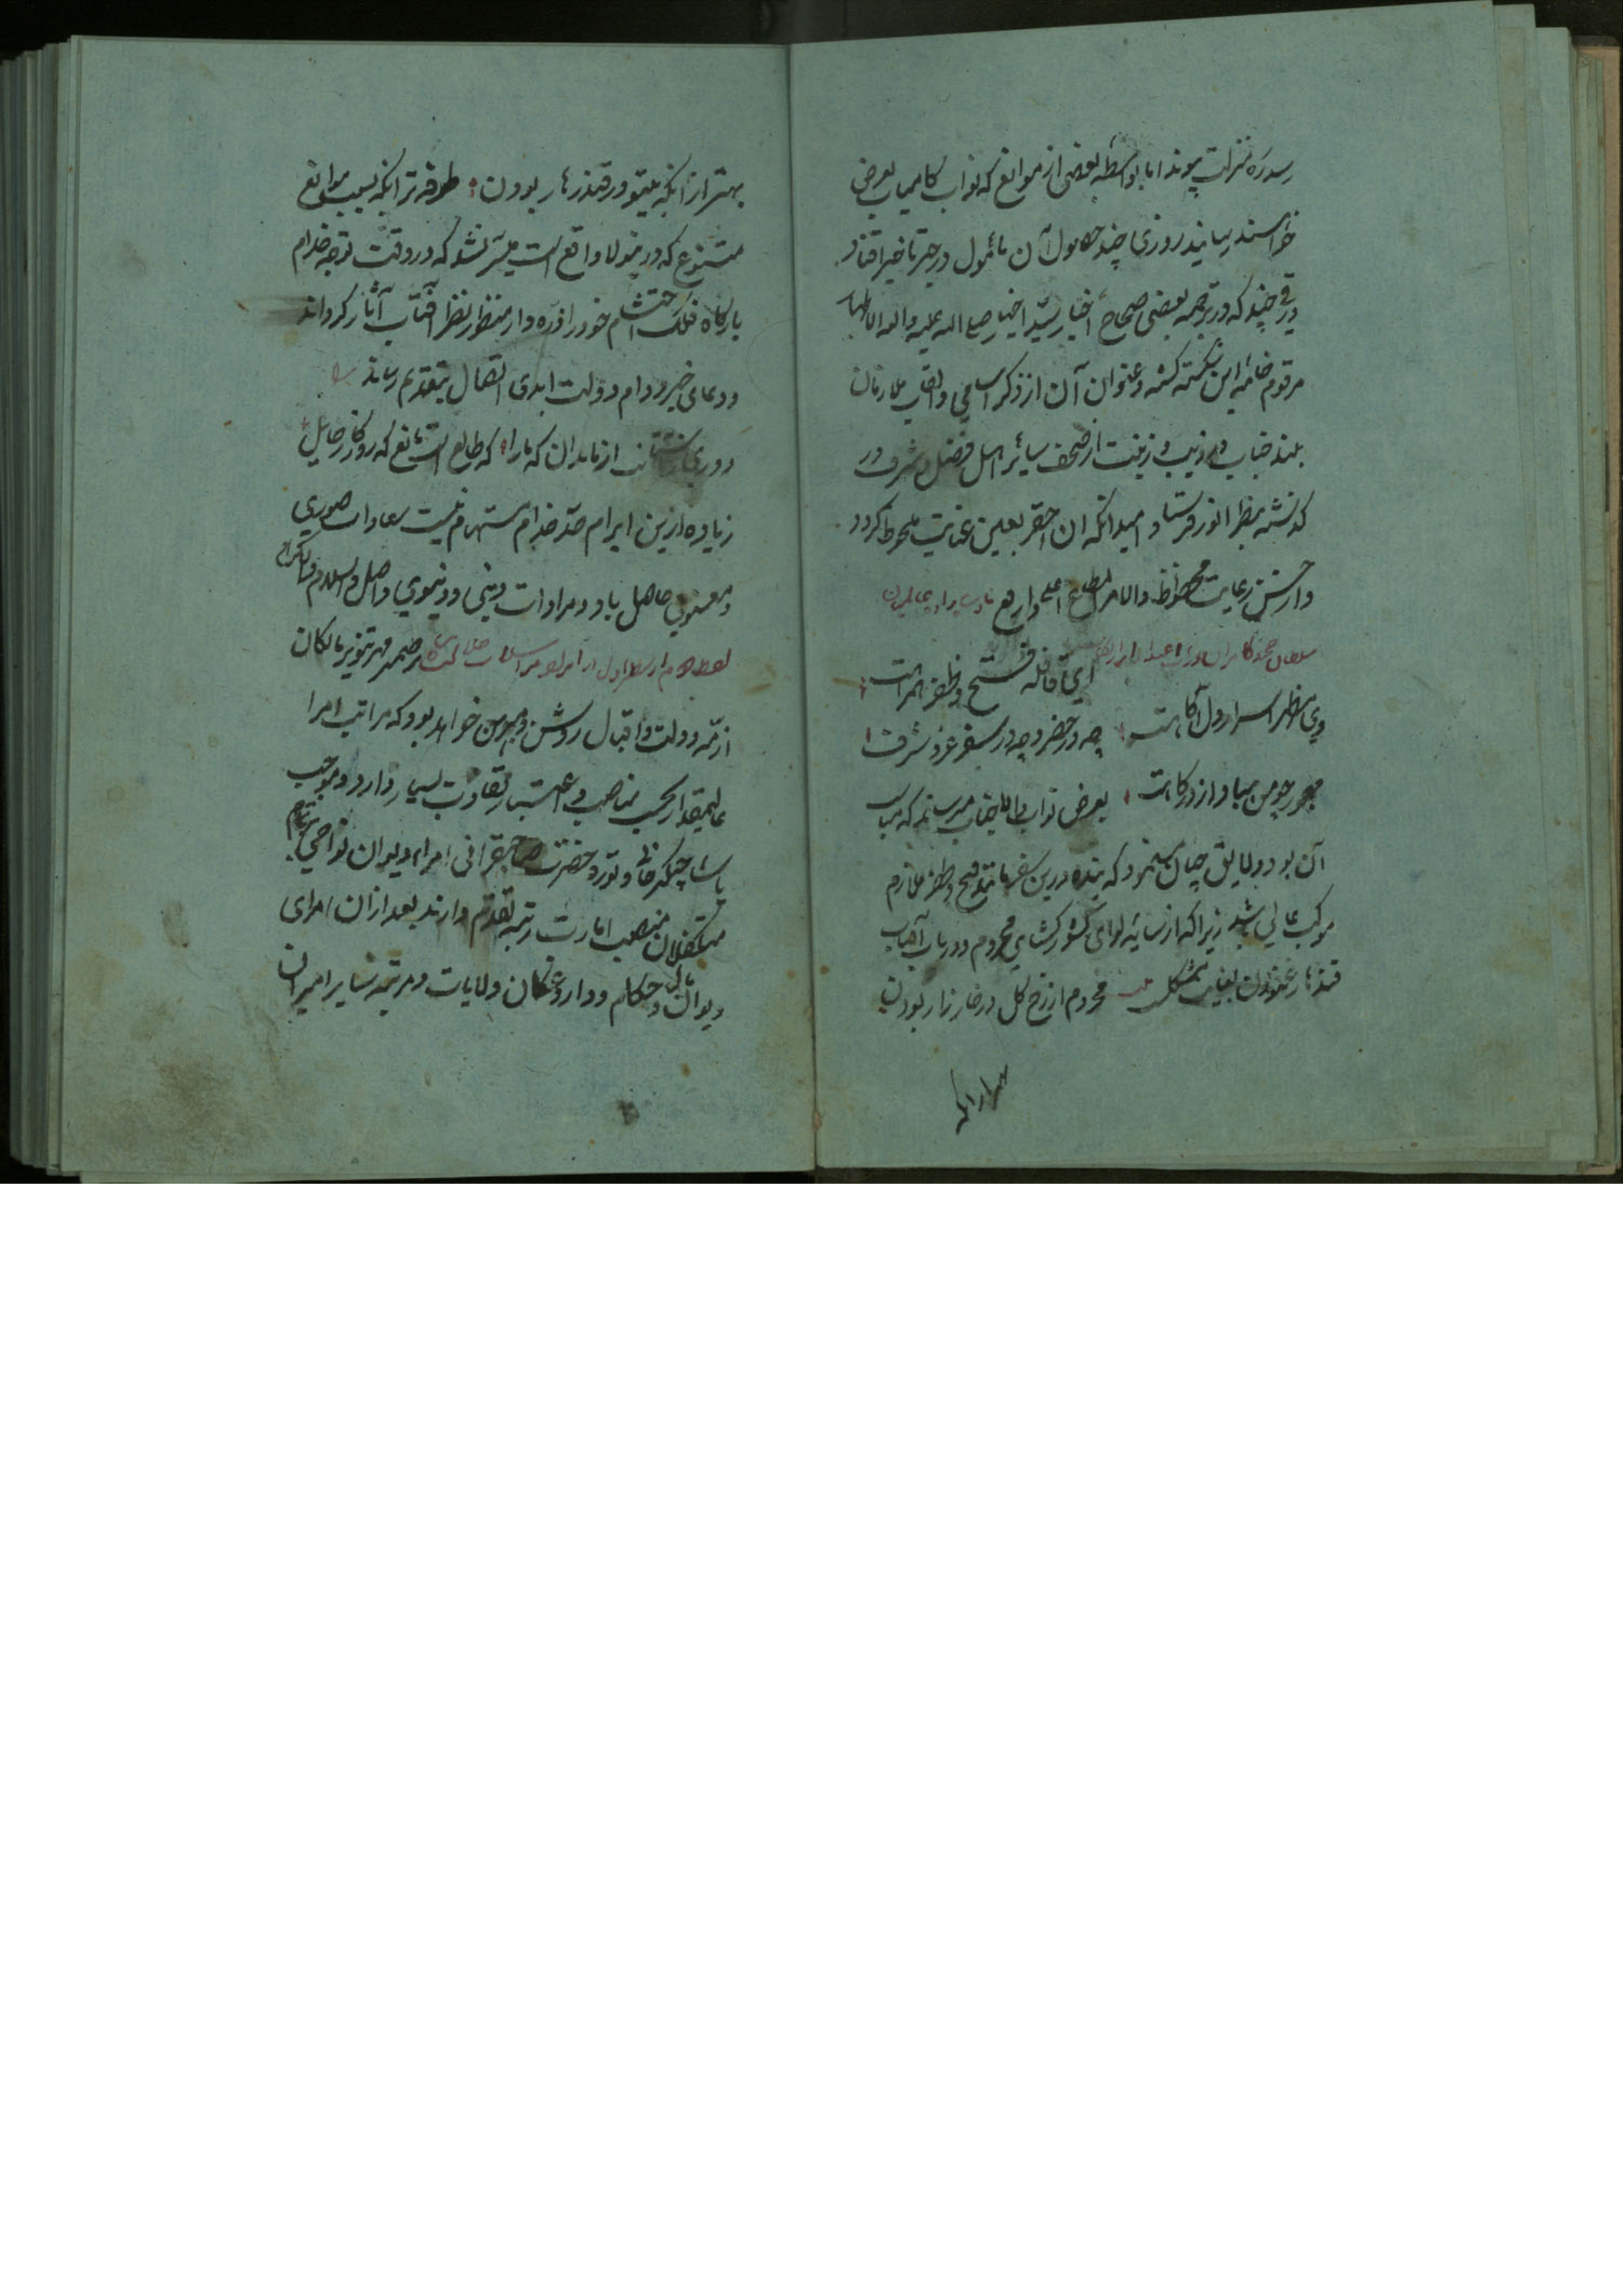 رسد ره منزلت پیوند اما بواسطه بعضی از موانع که نواب کامیاب بعرض
خواهند رسانید روزی چند حصول آن مأمول در حیز تاخیر افتاد
ورقی چند که در ترجمه بعضی صحاح اخبار سید اخیار صلی الله علیه و اله الاطهار
مرقوم خامه این شکسته گشته و عنوان آن از ذکر اسامی و القاب ملازمان
بلند جناب در زیب و زینت از صحف سایر اهل فضل و شرف در
گذشته بنظر انور فرستاد امید انکه ان احقر بعین عنایت ملحوظ کردد
و از حسن رعایت محظوظ و الامر المطاع اعلی و ارفع
سلطان محمد کامران
ای قافله فتح و ظفر همراهت
وی مظهر اسرار دل آگاهت چه در حضر و چه در سفر عز و شرف
مهجور چو من مباد از درگاهت بعرض نواب والا جناب میرساند که مناسب
آن بود و لایق چنان مینمود که بنده درین سفر مانند فتح و ظفر ملازم
موکب عالی باشد زیرا که از سایه لوای کشور کشای محروم و در باب آفتاب
قندهار غنودن بغایت مشکل محروم از رخ گل در خارزار بودن
بهتر از انکه
بهتر از انکه بیتو در قندهار بودن طرفه تر انکه بسبب موانع
متنوع که درینولا واقع است میسر نشد که در وقت توجه خدام
بارگاه فلک احتشام خود را ذره وار منظور نظر آفتاب آثار کرداند
و دعای خیر و دوام دولت ابدی اتصال بتقدیم رساند
دوری ز آستانت از ما بدان که ما را که طالع است مانع که روزگار حایل
زیاده ازین ابرام حد خدام مستهام نیست سعادات صوری
و معنوی حاصل باد و مرادات دینی و دنیوی واصل والسلام و الاکرام
لفظ دوم از سطر اول در ضمیر مهر تنویر مالکان
ازمه دولت و اقبال روشن و مبرهن خواهد بود که مراتب امرا
عالیمقدار بحسب مناصب و اعتبار تفاوت بسیار دارد و بموجب
یاسا چنگیز خانی و توره حضرت صاحبقرانی امراء دیوان نواحی
متکفلان منصب امارت رتبه تقدم دارند بعد ازان امرای
دیوان مالی و حکام و داروغگان ولایات و مرتبه سایر امیران